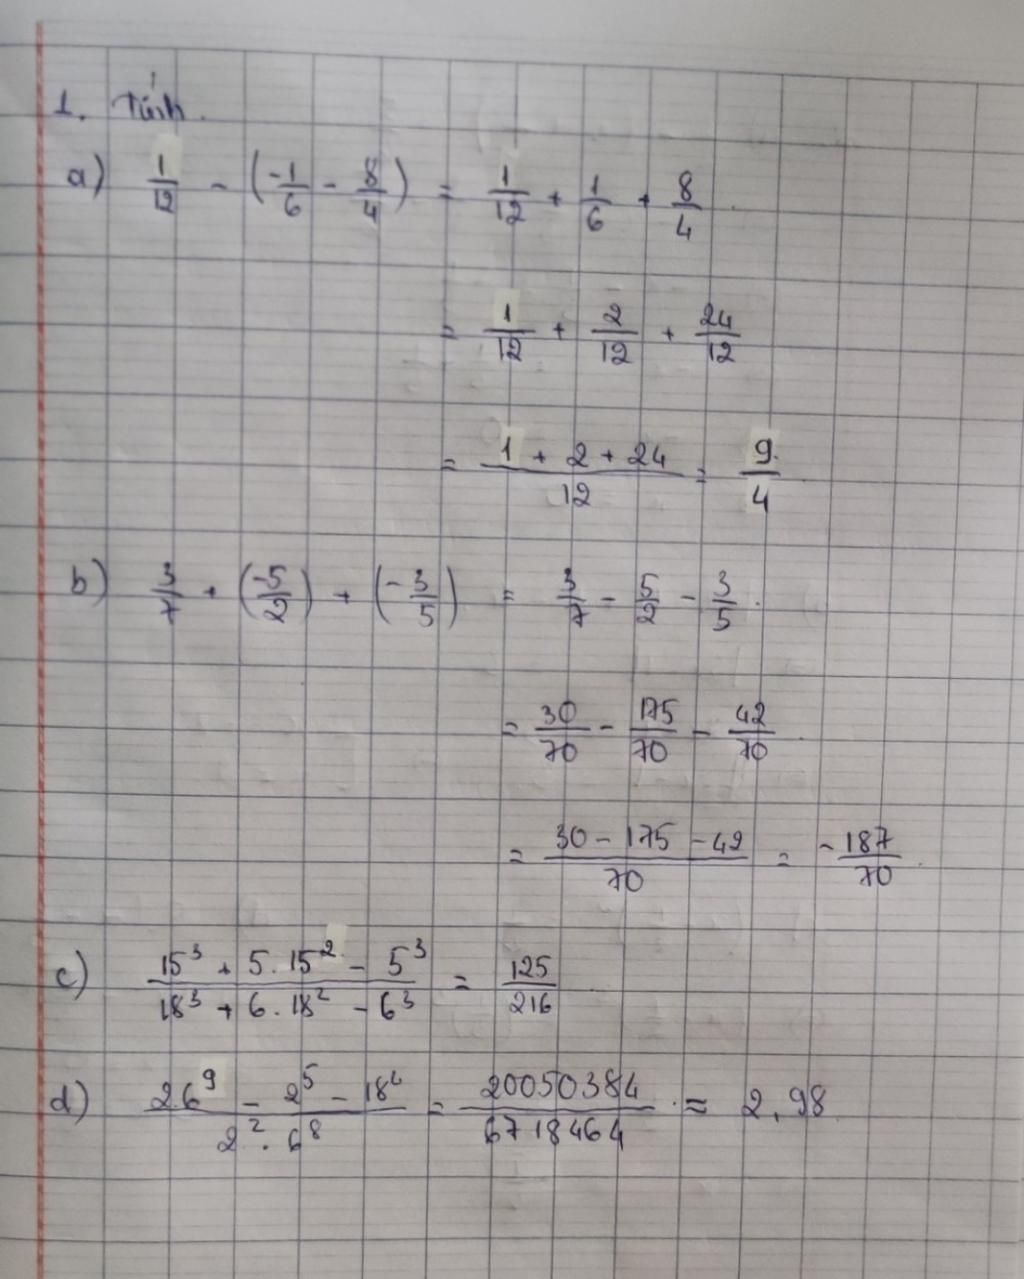 1. Tính.
a) 1/12 - (-1/6 - 8/4) = 1/12 + 1/6 + 8/4.
= 1/12 + 2/12 + 24/12
= (1 + 2 + 24)/12 = 9/4
b) 3/7 + (-5/2) + (-3/5) = 3/7 - 5/2 - 3/5.
= 30/70 - 175/70 - 42/70.
= (30 - 175 - 42)/70 = -187/70.
c) (15³ + 5.15² - 5³)/(18³ + 6.18² - 6³) = 125/216
d) (2.6⁹ - 2⁵ - 18⁴)/(2².6⁸) = 20050384/6718464 = 2,98